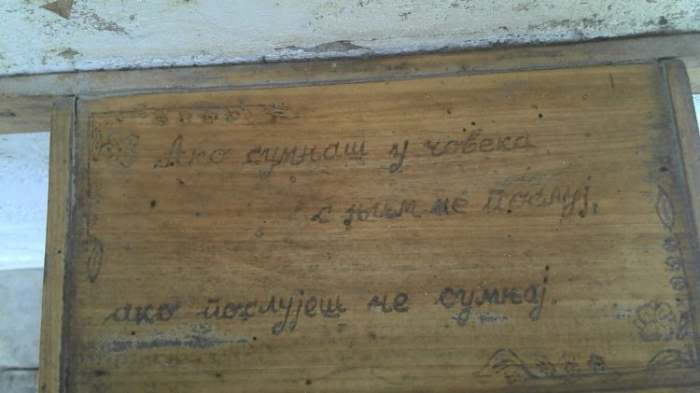 Ако сумњаш у човека
с њим не послуј,
ако послујеш не сумњај.